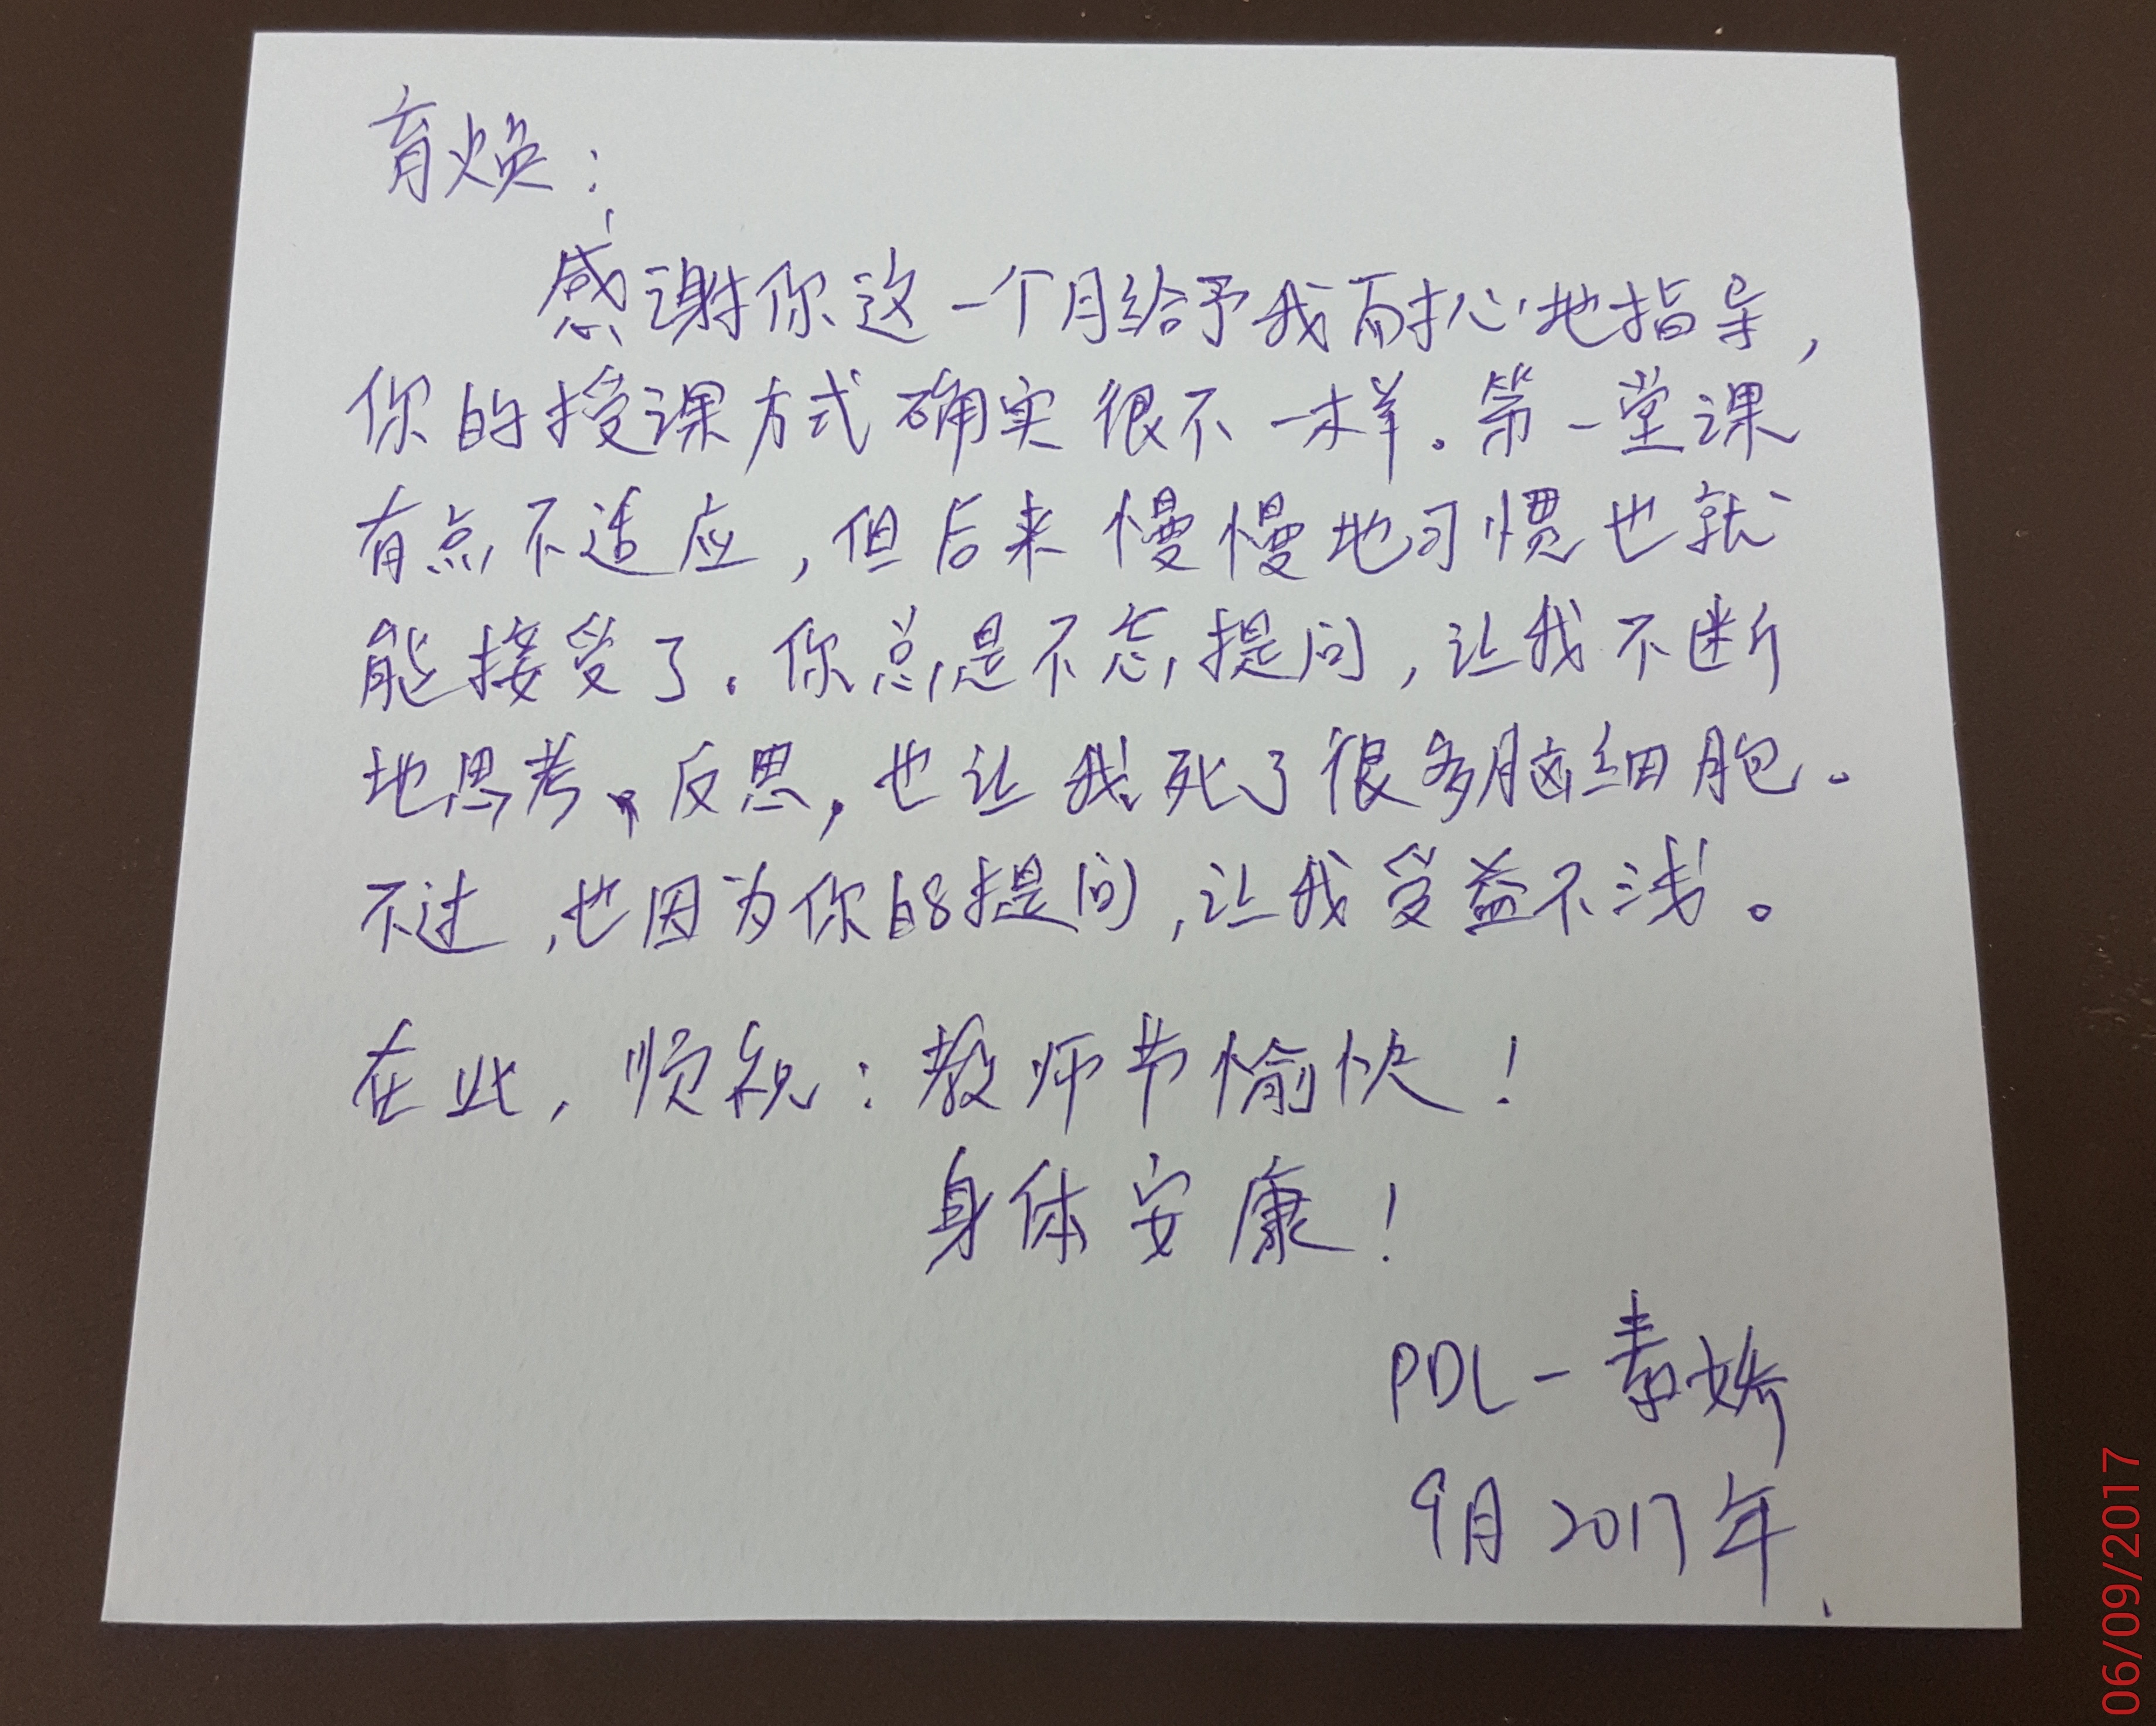 育焕：
感谢你这一个月给予我耐心地指导，
你的授课方式确实很不一样。第一堂课
有点不适应，但后来慢慢地习惯也就
能接受了。你总是不忘提问，让我不断
地思考、反思，也让我死了很多脑细胞。
不过，也因为你的提问，让我受益不浅。
在此，顺祝：教师节愉快！
身体安康！
PDL-素娇
9月2017年
06/09/2017